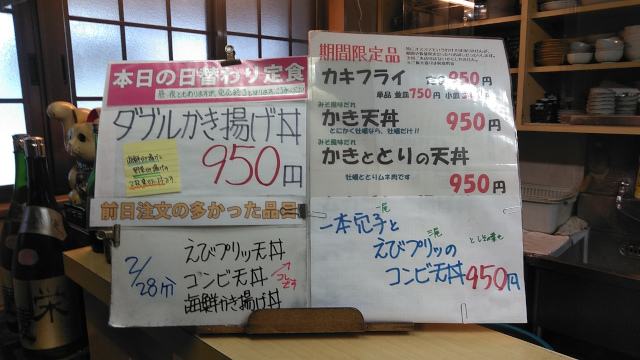 本日の日替わり定食
ダブルかき揚げ丼
950円
海鮮かき揚げと
野菜かき揚げの
前日注文の多かった品
2/28分
えびプリッ天丼
コンビ天丼
海鮮かき揚げ丼
期間限定品
カキフライ
950円
単品 並皿750円 小皿
みそ風味だれ
かき天丼
とにかく牡蠣なら、牡蠣だけ!!
950円
みそ風味だれ
かきととりの天丼
牡蠣ととりムネ肉です
950円
一本穴子と
えびプリッの
コンビ天丼950円
栄